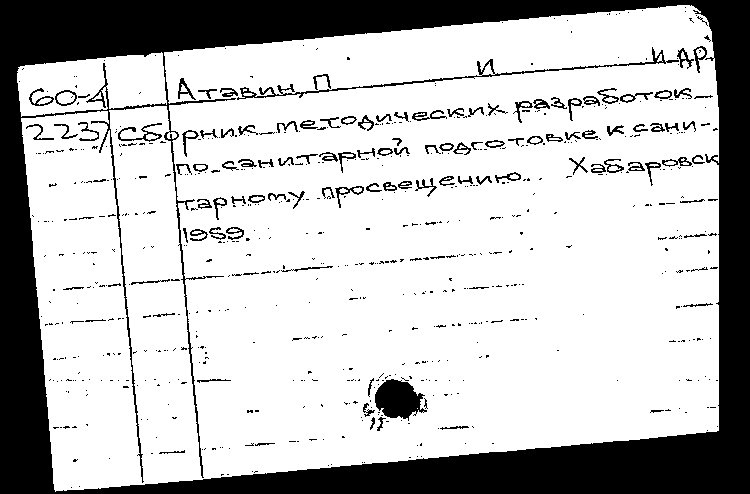 60-4 Атавин, П И и др.
2237 Сборник методических разработок
по санитарной подготовке к сани-
тарному просвещению. Хабаровск
1959.